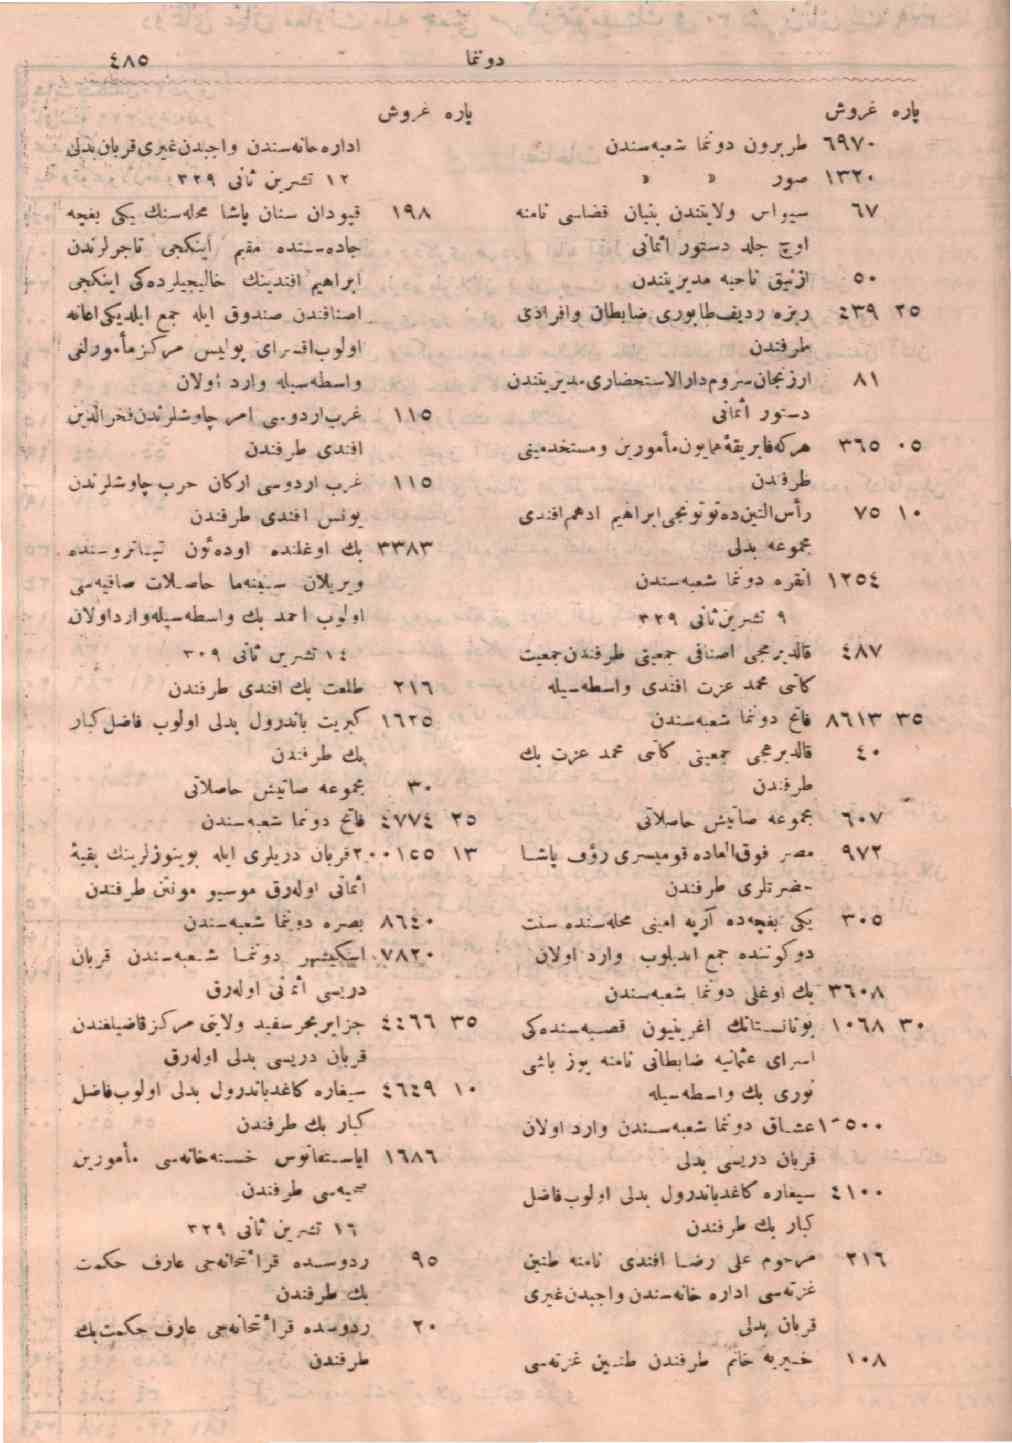 دوننما
٤٨٥
پاره غروش
٦٩٧٠ طربزون دوننما شعبه‌سندن
١٣٢٠ صور » »
٦٧ سیواس ولایتندن بنیان قضاسی نامنه
اوچ جلد دستور اثمانی
٥٠ ازنیق ناحیه مدیریتندن
٢٥ ٤٣٩ ریزه ردیف طابوری ضابطان وافرادی
طرفندن
٨١ ارزنجان سروم دارالاستحضاری مدیریتندن
دستور اثمانی
٠٥ ٣٦٥ هرکه فابریقهٔ همایون مأمورین ومستخدمینی
طرفندن
١٠ ٧٥ رأس التین‌ده توتونجی ابراهیم ادهم افندی
مجموعه بدلی
١٢٥٤ انقره دوننما شعبه‌سندن
٩ تشرین ثانی ٣٢٩
٤٨٧ قالدیرمجی اصنافی جمعیتی طرفندن جمعیت
کاتبی محمد عزت افندی واسطه‌سیله
٣٥ ٨٦١٣ فاتح دوننما شعبه‌سندن
٤٠ قالدیرمجی جمعیتی کاتبی محمد عزت بك
طرفندن
٦٠٧ مجموعه صاتیش حاصلاتی
٩٧٢ مصر فوق‌العاده قومیسری رؤف پاشا
حضرتلری طرفندن
٣٠٥ یکی بغچه‌ده آرپه امینی محله‌سنده سنت
دوکوننده جمع ایدیلوب وارد اولان
٣٦٠٨ بك اوغلی دوننما شعبه‌سندن
٣٠ ١٠٦٨ یونانستانك اغرینیون قصبه‌سنده‌کی
اسرای عثمانیه ضابطانی نامنه یوز باشی
نوری بك واسطه‌سیله
١٠٥٠٠ عشاق دوننما شعبه‌سندن وارد اولان
قربان دریسی بدلی
٤١٠٠ سیغاره کاغد باندرول بدلی اولوب فاضل
کبار بك طرفندن
٢١٦ مرحوم علی رضا افندی نامنه طنین
غزته‌سی اداره خانه‌سندن واجبدن غیری
قربان بدلی
١٠٨ خیریه خانم طرفندن طنین غزته‌سی
پاره غروش
اداره‌خانه‌سندن واجبدن غیری قربان بدلی
١٢ تشرین ثانی ٣٢٩
١٩٨ قپودان سنان پاشا محله‌سنك یکی بغچه
جاده‌سنده مقیم اینکجی تاجرلرندن
ابراهیم افندینك خالیجیلرده‌کی اینکجی
اصنافندن صندوق ایله جمع ایلدیکی اعانه
اولوب اقسرای پولیس مرکز مأمورلغی
واسطه‌سیله وارد اولان
١١٥ غرب اردوسی امر چاوشلرندن فخرالدین
افندی طرفندن
١١٥ غرب اردوسی ارکان حرب چاوشلرندن
یونس افندی طرفندن
٣٣٨٣ بك اوغلنده اوده‌ئون تیاتروسنده
ویریلان سینه‌ما حاصلات صافیه‌سی
اولوب احمد بك واسطه‌سیله وارد اولان
١٤ تشرین ثانی ٣٠٩
٢١٦ طلعت بك افندی طرفندن
١٦٢٥ کبریت باندرول بدلی اولوب فاضل کبار
بك طرفندن
٣٠ مجموعه صاتیش حاصلاتی
٢٥ ٤٧٧٤ فاتح دوننما شعبه‌سندن
١٣ ٢٠٠١٤٥ قربان دریلری ایله بوینوزلرینك بقیهٔ
اثمانی اوله‌رق موسیو مونتن طرفندن
٨٦٤٠ بصره دوننما شعبه‌سندن
٧٨٢٠ اسکیشهر دوننما شعبه‌سندن قربان
دریسی اثمانی اوله‌رق
٣٥ ٤٤٦٦ جزایر بحر سفید ولایتی مرکز قاضیلغندن
قربان دریسی بدلی اوله‌رق
١٠ ٤٦٤٩ سیغاره کاغد باندرول بدلی اولوب فاضل
کبار بك طرفندن
١٦٨٦ ایاستفانوس خسته‌خانه‌سی مأمورین
صحیه‌سی طرفندن
١٦ تشرین ثانی ٣٢٩
٩٥ ردوسده قرائتخانه‌جی عارف حکمت
بك طرفندن
٢٠ ردوسده قرائتخانه‌جی عارف حکمت بك
طرفندن